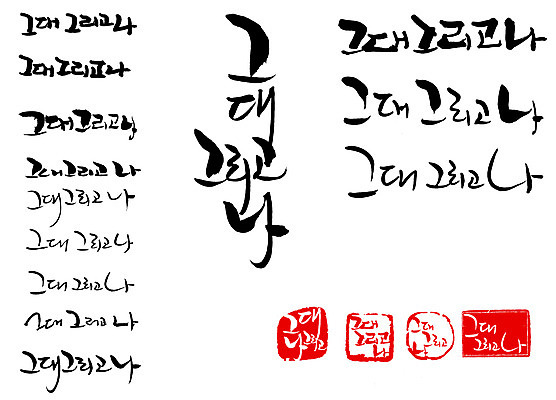 그대 그리고 나
그대 그리고 나
그대 그리고 나
그대 그리고 나
그대 그리고 나
그대 그리고 나
그대 그리고 나
그대 그리고 나
그대 그리고 나
그
대
그리고
나
그대 그리고 나
그대 그리고 나
그대 그리고 나
그대
그리고
나
그대
그리고
나
그대
그리고
나
그대
그리고 나